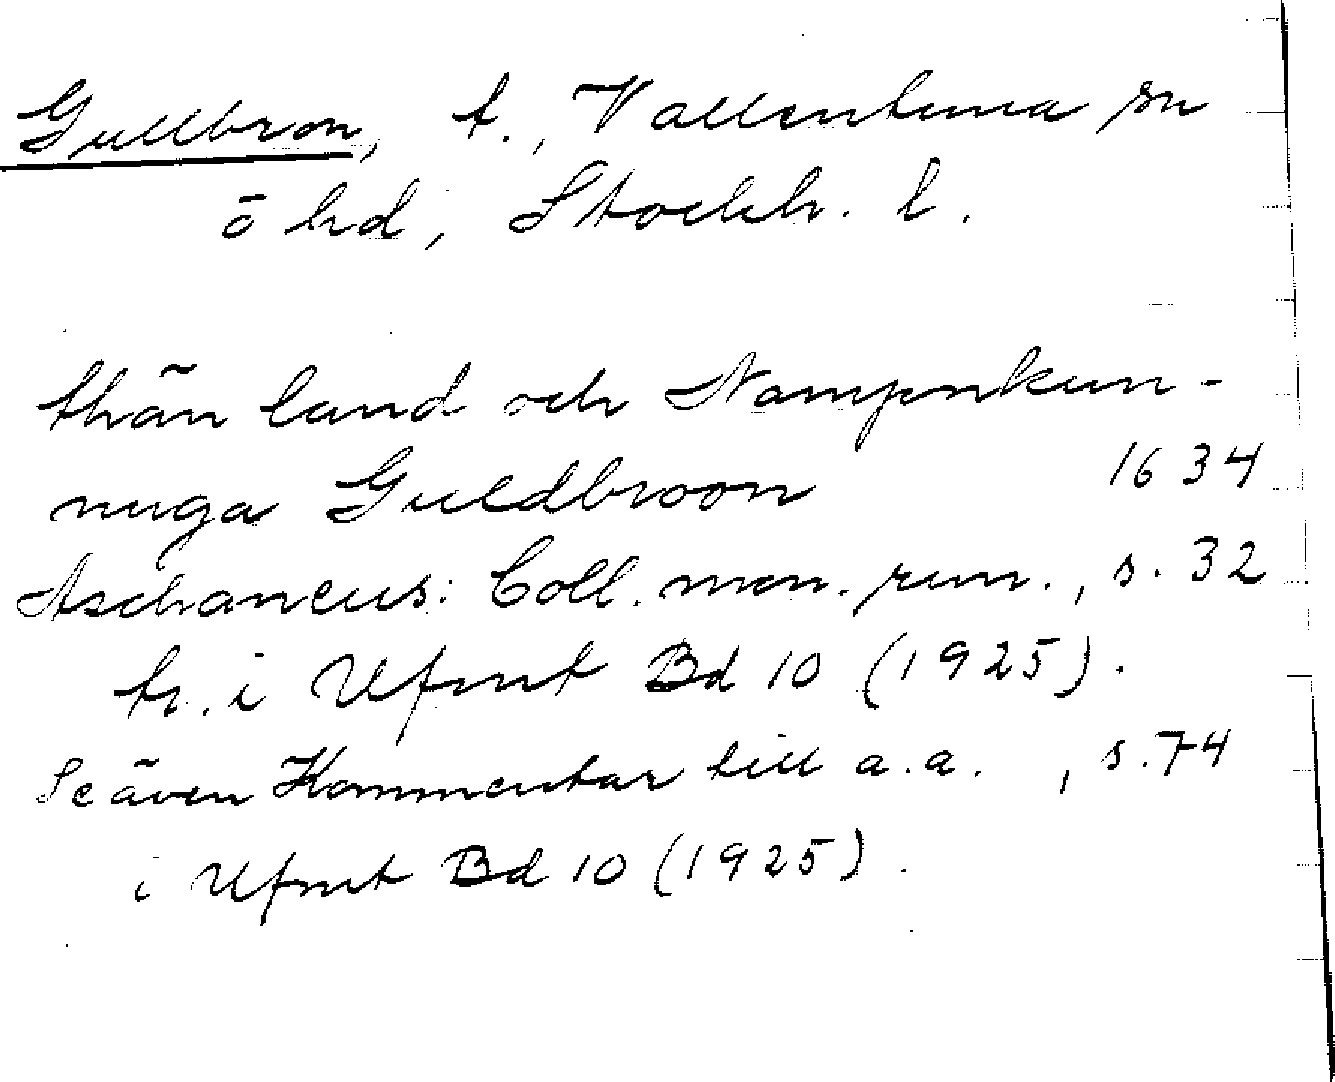 Gullbron, t., Vallentuna sn
ö hd, Stockh. l.
thän land och Nampnkun-
nuga Guldbroon 1634
Aschaneus: Coll. mon. run., s. 32
tr. i Ufmt Bd 10 (1925).
Se även Kommentar till a.a., s. 74
i Ufmt Bd 10 (1925).